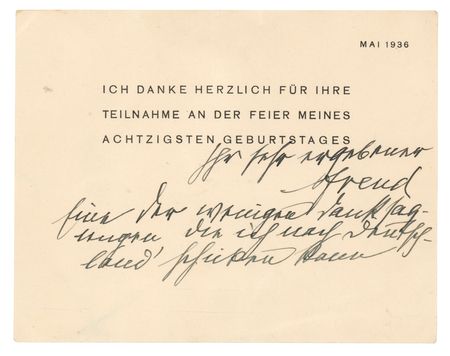 MAI 1936
ICH DANKE HERZLICH FÜR IHRE
TEILNAHME AN DER FEIER MEINES
ACHTZIGSTEN GEBURTSTAGES
Ihr sehr ergebener
Freud
Eine der wenigen Danksag-
ungen die ich nach Deutsch-
land schicken kann